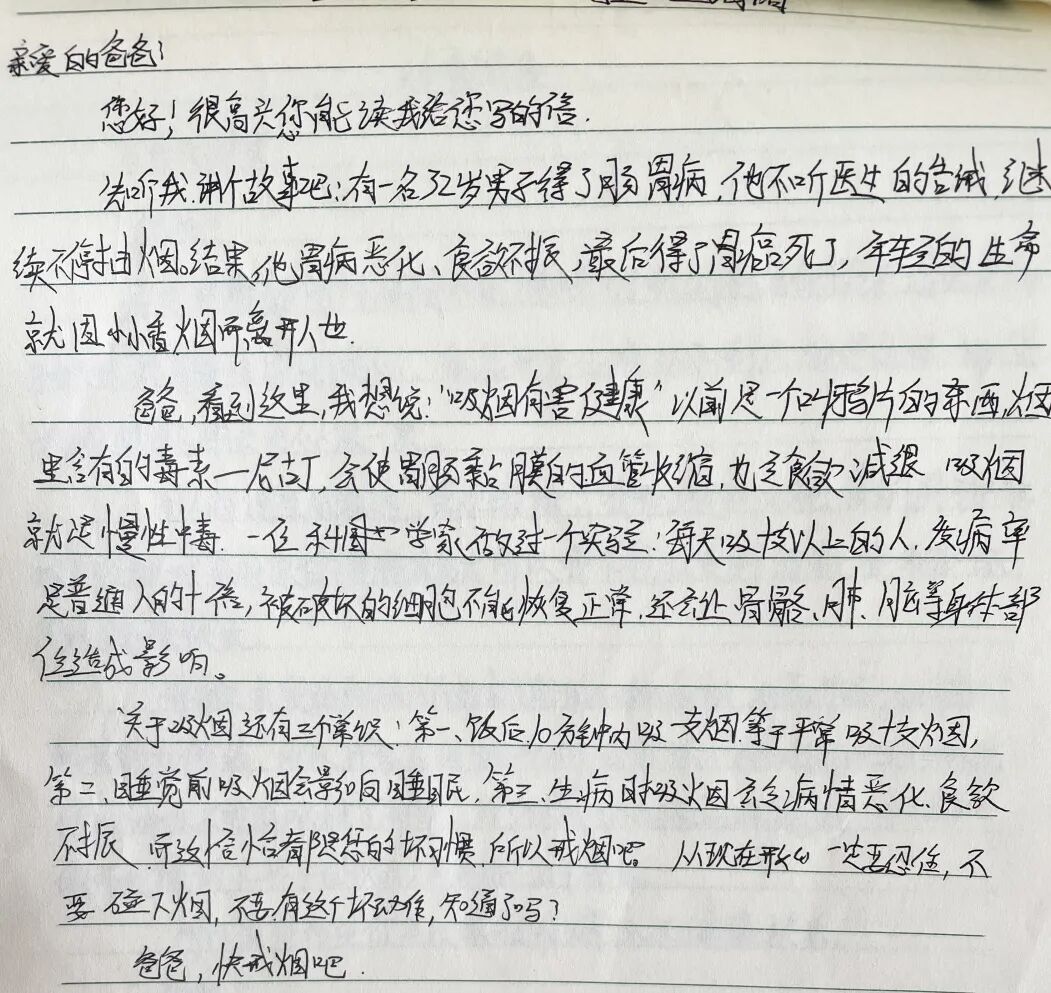 亲爱的爸爸:
您好!很高兴您能读我给您写的信.
先听我讲个故事吧:有一名32岁男子得了肠胃病,他不听医生的告诫,继
续不停抽烟。结果他胃病恶化、食欲不振,最后得了胃癌死了,年轻的生命
就因小小香烟而离开人世.
爸爸,看到这里,我想说:"吸烟有害健康"以前是一个叫鸦片的东西,烟
里含有的毒素一尼古丁,会使胃肠黏膜的血管收缩,也会食欲减退 吸烟
就是慢性中毒. 一位科学家做过一个实验:每天吸十支以上的人,发病率
是普通人的十倍,被破坏的细胞不能恢复正常,还会让骨骼、肺、脑等身体部
位造成影响。
关于吸烟还有三个常识:第一、饭后10分钟内吸一支烟.等于平常吸十支烟,
第二、睡觉前吸烟会影响睡眠,第三、生病时吸烟会让病情恶化、食欲
不振 而这恰恰都是您的坏习惯,所以戒烟吧。从现在开始一定要忍住,不
要碰下烟,不要有这个坏动作,知道了吗?
爸爸,快戒烟吧.